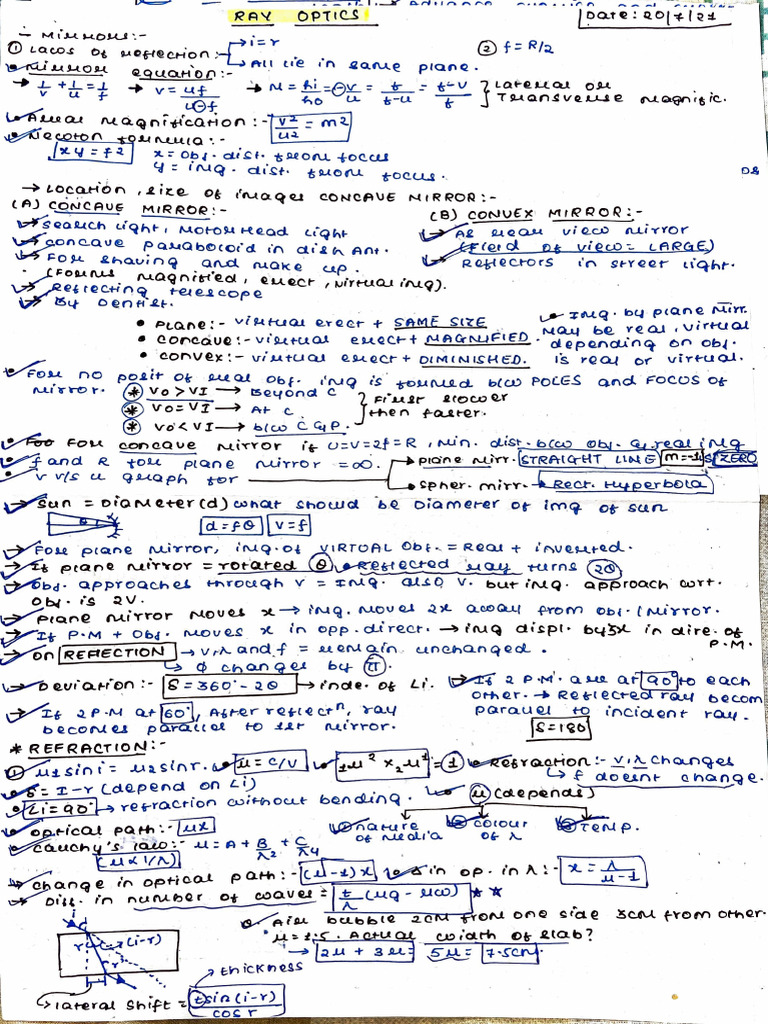 RAY OPTICS
Date: 20/7/21
∸ Mirrors:-
① Laws of reflection:- → i=r
→ All lie in same plane.
② f=R/2
• Mirror equation:-
→ 1/v + 1/u = 1/f → v = uf/u-f → M = hi/ho = -v/u = f/f-u = f-v/f } Lateral or Transverse Magnific.
• Areal Magnification:- v²/u² = m²
• Newton formula:-
xy = f² x = obj. dist. from focus
y = img. dist. from focus.
→ Location, size of images CONCAVE MIRROR:-
(A) CONCAVE MIRROR:-
→ Search light, Motorhead light
→ Concave paraboloid in dish Ant.
→ For shaving and make up.
(Forms magnified, erect, virtual img).
→ Reflecting telescope
→ By Dentist.
(B) CONVEX MIRROR:-
→ As rear view mirror
(Field of view = LARGE)
Reflectors in street light.
• Plane:- virtual erect + SAME SIZE
• concave:- virtual erect + MAGNIFIED.
• convex:- virtual erect + DIMINISHED.
• Img. by plane Mirr. may be real, virtual depending on obj. is real or virtual.
• For no posit of real obj. img is formed b/w POLES and FOCUS of mirror.
* VO > VI → Beyond C
* VO = VI → At C
* VO < VI → b/w C & P.
} First slower then faster.
• For concave mirror if U=V=2f=R, Min. dist. b/w obj. & real img is ZERO
• f and R for plane mirror = ∞.
• v v/s u graph for → plane mirr. STRAIGHT LINE m=-1
→ spher. mirr. → Rect. Hyperbola
→ Sun = Diameter(d) what should be Diameter of img of sun
d = fθ v = f
→ For plane mirror, img. of VIRTUAL Obj. = Real + inverted.
→ If plane mirror = rotated θ • Reflected ray turns 2θ
→ Obj. approaches through v = Img. also v. but img. approach wrt. obj. is 2v.
→ plane mirror moves x → img. moves 2x away from obj. / mirror.
→ If P.M + Obj. moves x in opp. direct. → img displ. by 3x in dire. of P.M.
→ on REFLECTION → v, λ and f = remain unchanged.
→ ϕ changes by π.
→ Deviation:- δ = 360° - 2θ → inde. of Li.
→ If 2 P.M. are at 90° to each other. → Reflected ray becom parallel to incident ray.
δ = 180
→ If 2 P.M at 60°, After reflectⁿ, ray becomes parallel to 1st mirror.
* REFRACTION:-
① μ1 sini = μ2 sinr. • μ = c/v • 1μ2 x 2μ1 = 1 • Refraction:- v, λ changes
→ f doesnt change.
• δ = I-r (depend on Li)
• Li = 90° → refraction without bending.
• μ (depends)
① nature of media ② colour of λ ③ Temp.
• optical path:- μx
• cauchy's law:- μ = A + B/λ² + C/λ4
(μ α 1/λ)
→ change in optical path:- (μ-1)x • Δ in op. in λ:- x = λ/μ-1
→ Diff. in number of waves = t/λ (μg - μw) ★★
Q. Air bubble 2cm from one side 3cm from other.
μ = 1.5. Actual width of slab?
→ 2μ + 3μ = 5μ = 7.5cm.
i
r (i-r)
r
→ thickness
→ lateral shift = t sin(i-r)/cosr